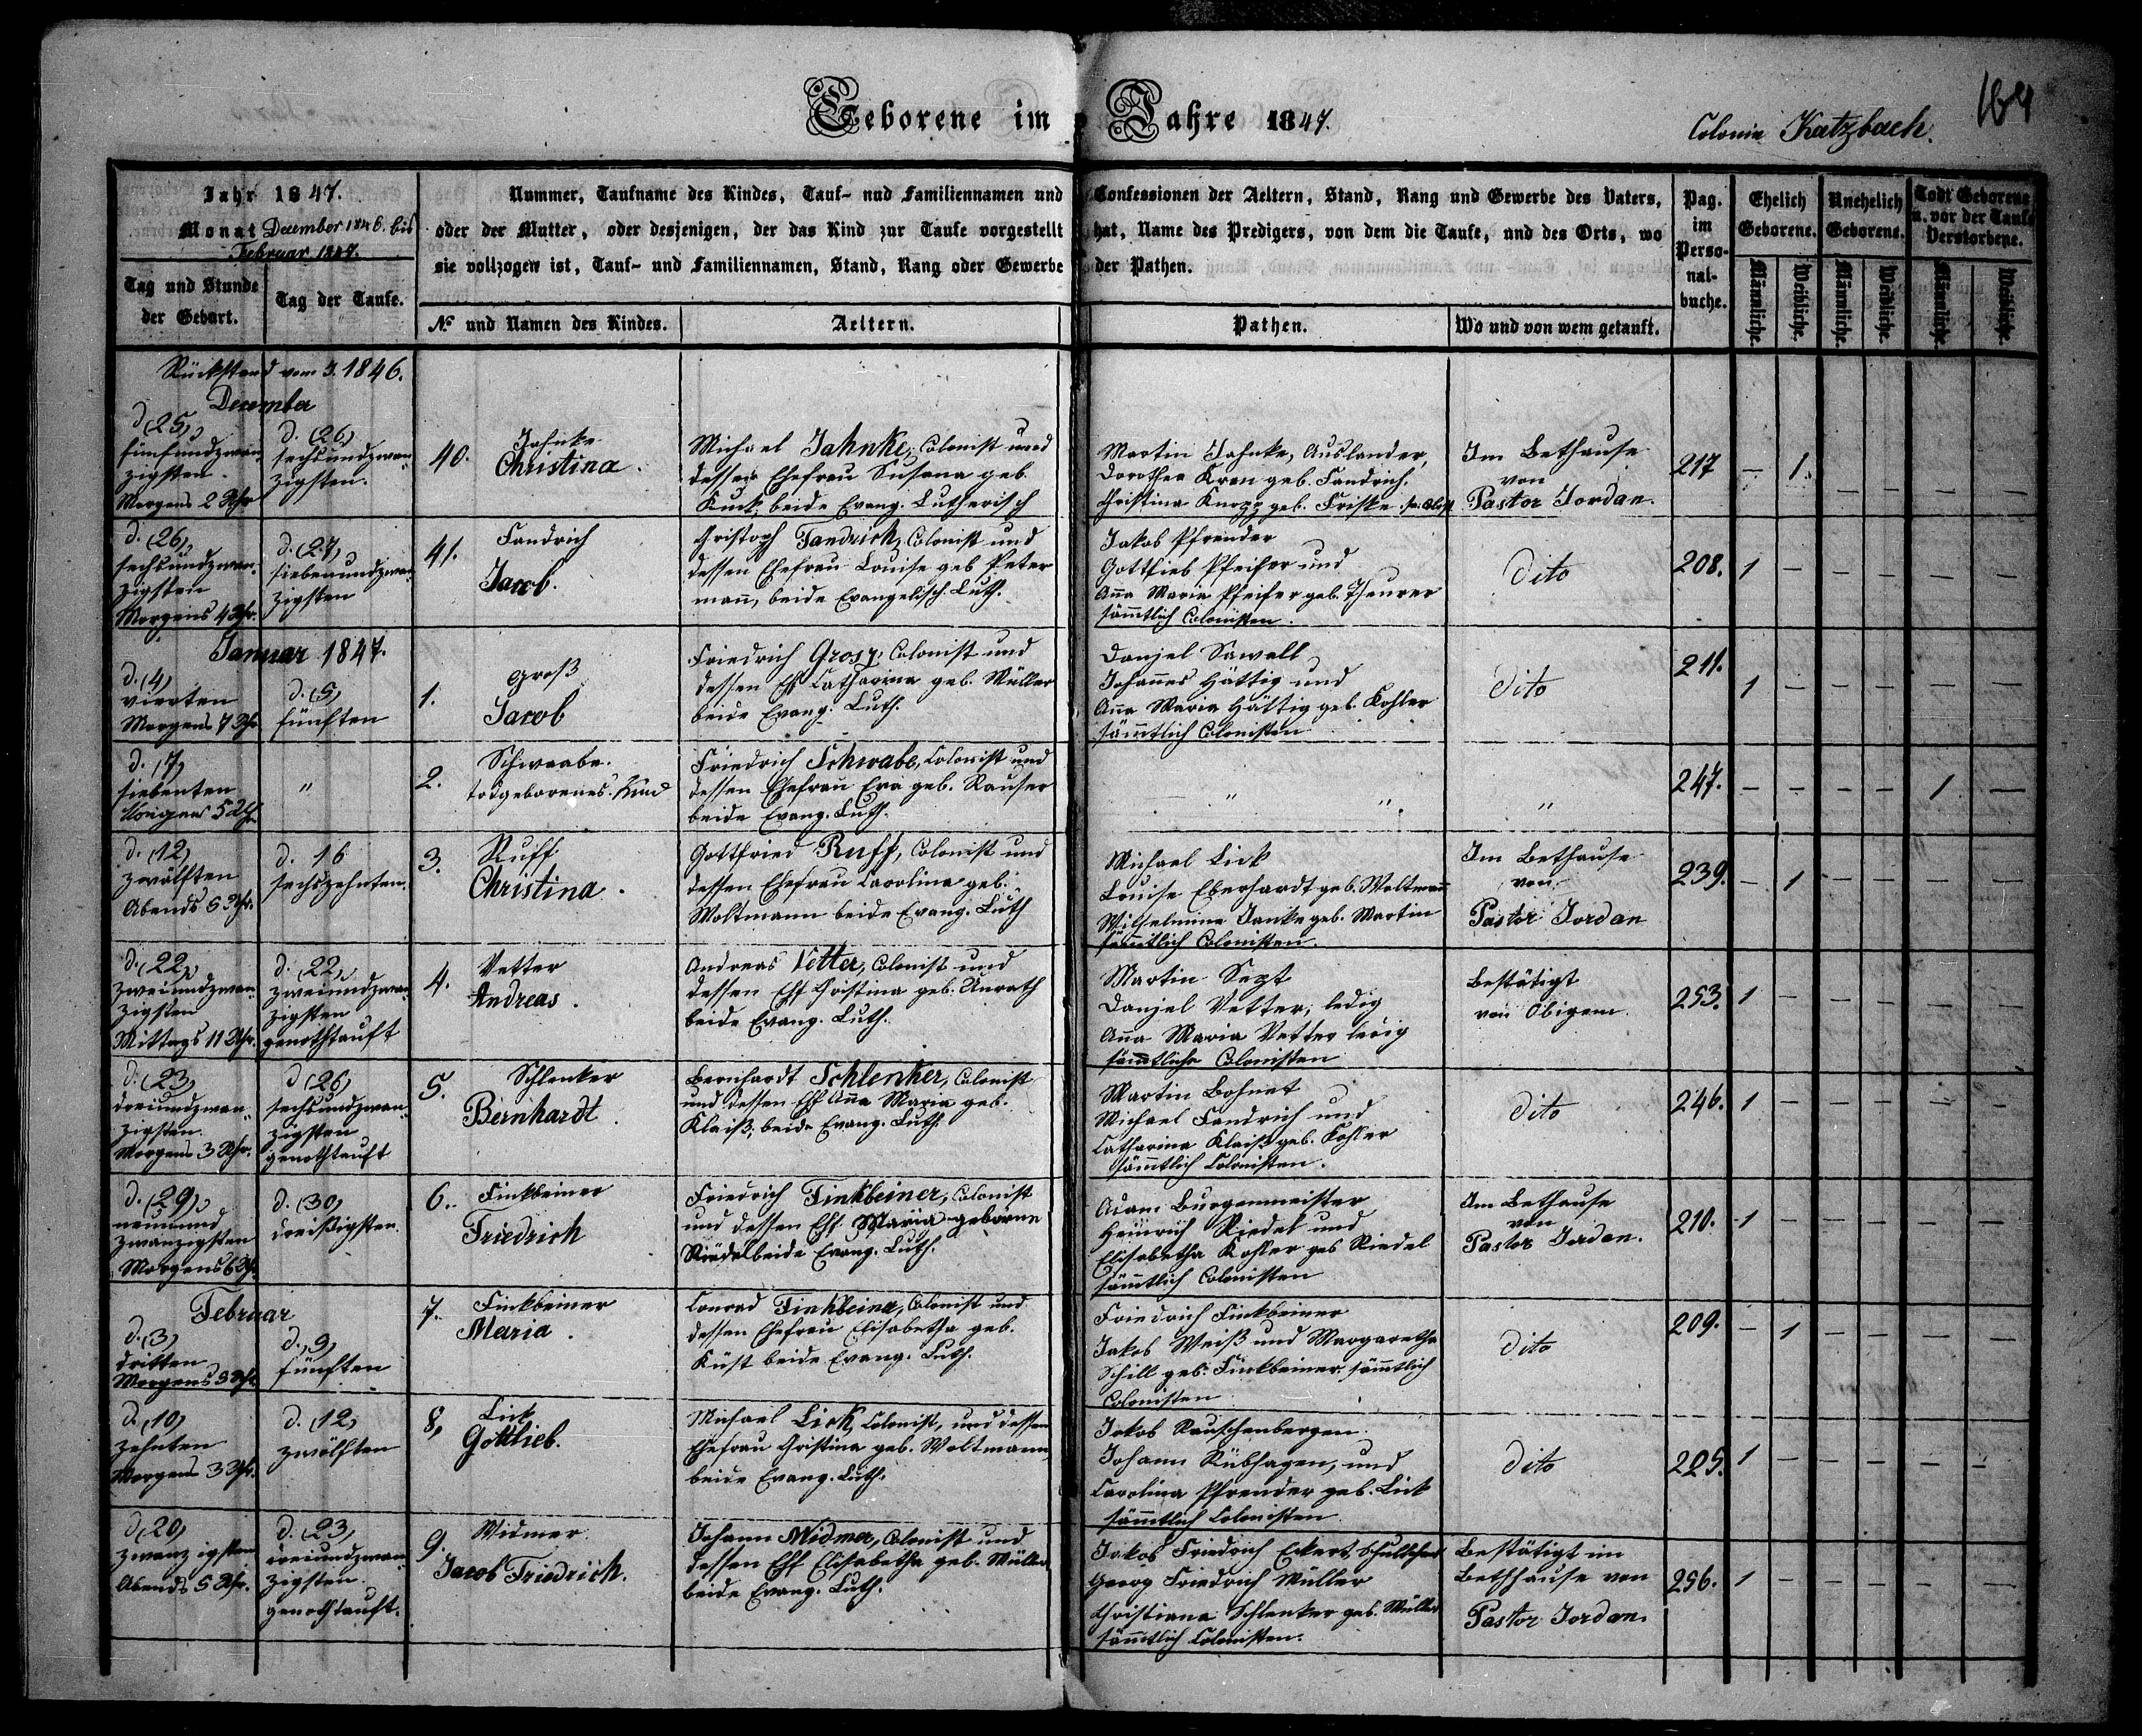 164
Geborene im Jahre 1847.
Colonie Katzbach.
Jahr 1847.
Monat December 1846. bis
Februar 1847.
Tag und Stunde
der Geburt.
Tag der Taufe.
Nummer, Taufname des Kindes, Tauf- und Familiennamen und Confessionen der Aeltern, Stand, Rang und Gewerbe des Vaters,
oder der Mutter, oder desjenigen, der das Kind zur Taufe vorgestellt hat, Name des Predigers, von dem die Taufe, und des Orts, wo
sie vollzogen ist, Tauf- und Familiennamen, Stand, Rang oder Gewerbe der Pathen.
№ und Namen des Kindes.
Aeltern.
Pathen.
Wo und von wem getauft.
Pag.
im
Perso-
nal-
buche.
Ehelich
Geborene.
Unehelich
Geborene.
Todt Geborene
u. vor der Taufe
Verstorbene.
Männliche.
Weibliche.
Männliche.
Weibliche.
Männliche.
Weibliche.
Rückstand vom J. 1846.
December
d. (25)
fünfundzwan-
zigsten
Morgens 2 Uhr
d. (26)
sechsundzwan-
zigsten.
40.
Jahnke
Christina.
Michael Jahnke, Colonist und
dessen Ehefrau Susana geb.
Kuck, beide Evang. Lutherisch
Martin Jahnke, Auslander,
Dorothea Kren geb. Fandrich.
Christina Knopp geb. Friske
Im Bethause
von
Pastor Jordan.
217 – 1. – – – –
d. (26)
sechsundzwan-
zigsten
Morgens 4 Uhr.
d. (27)
siebenundzwan-
zigsten
41.
Fandrich
Jacob.
Christoph Fandrich, Colonist und
dessen Ehefrau Louise geb. Peter
mann, beide Evangelisch. Luth.
Jakob Pfrender
Gottlieb Pfeifer und
Anna Maria Pfeifer geb. Theurer
sämmtlich Colonisten.
dito
208. 1 – – – – –
Januar 1847.
d. (4)
vierten
Morgens 7 Uhr
d. (5)
fünften
1.
Groß
Jacob
Friedrich Grosz, Colonist und
dessen Ehf Catharina geb. Müller
beide Evang. Luth.
Danjel Sawall
Johannes Hättig und
Anna Maria Hättig geb. Kohler
sämmtlich Colonisten
dito
211. 1 – – – – –
d. (7)
siebenten
Morgens 5 Uhr
"
2.
Schwabe.
todgeborenes Kind
Friedrich Schwabe, Colonist und
dessen Ehefrau Eva geb. Rauser
beide Evang. Luth.
" " "
247. – – – – 1 –
d. (12)
zwölften
Abends 6 Uhr.
d. 16
sechszehnten.
3.
Ruff
Christina.
Gottfried Ruff, Colonist und
dessen Ehefrau Carolina geb.
Woltmann beide Evang. Luth
Michael Lick
Louise Eberhardt geb. Woltmann
Wilhelmine Janke geb. Martin
sämmtlich Colonisten.
Im Bethause
von
Pastor Jordan
239. – 1 – – – –
d. (22)
zweiundzwan-
zigsten
Mittags 11 Uhr.
d. (22)
zweiundzwan-
zigsten
genothtauft
4.
Vetter
Andreas.
Andreas Vetter, Colonist und
dessen Ehf Christina geb. Unrath
beide Evang. Luth.
Martin Sept
Danjel Vetter, ledig
Anna Maria Vetter ledig
sämmtliche Colonisten
Bestätigt
von Obigem.
253. 1 – – – – –
d. (23)
dreiundzwan-
zigsten.
Morgens 3 Uhr.
d (26)
sechsundzwan-
zigsten
genothtauft
5.
Schlenker
Bernhardt.
Bernhardt Schlenker, Colonist
und dessen Ehf Anna Maria geb.
Klaiß, beide Evang. Luth.
Martin Bohnet
Michael Fandrich und
Catharina Klaiß geb. Kohler
sämmtlich Colonisten.
dito
246. 1 – – – – –
d. (29)
neunund
zwanzigsten
Morgens 6 Uhr.
d. (30)
dreißigsten.
6.
Finkbeiner
Friedrich
Friedrich Finkbeiner, Colonist
und dessen Ehf. Maria geborne
Riedel beide Evang. Luth.
Adam Burgenmeister
Heinrich Riedel und
Elisabetha Kohler geb Riedel
sämmtlich Colonisten
Im Bethause
von
Pastor Jordan.
210. 1 – – – – –
Februar
d. (3)
dritten
Morgens 3 Uhr.
fünften
7.
Finkbeiner
Maria.
Conrad Finkbeiner, Colonist und
dessen Ehefrau Elisabetha geb.
Küst beide Evang. Luth.
Friedrich Finkbeiner
Jakob Weiß und Margaretha
Schill geb. Finkbeiner sämmtlich
Colonisten
dito
209. – 1 – – – –
d. (10)
zehnten
Morgens 3 Uhr.
d. (12)
zwölften
8.
Lick
Gottlieb.
Michael Lick, Colonist, und dessen
Ehefrau Christina geb. Woltmann,
beide Evang. Luth.
Jakob Rauschenberger.
Johann Rübhagen, und
Carolina Pfrender geb. Lick
sämmtlich Colonisten
dito
225. 1 – – – – –
d (20)
zwanzigsten
Abends 5 Uhr.
d. (23)
dreiundzwan-
zigsten.
genothtauft.
9.
Widmer
Jacob Friedrich.
Johann Widmer, Colonist und
dessen Ehf Elisabetha geb. Müller
beide Evang. Luth.
Jakob Friedrich Eckert
Georg Friedrich Müller
Christiana Schlenker geb. Müller
sämmtlich Colonisten.
Bestätigt im
Bethhause von
Pastor Jordan.
256. 1 – – – – –